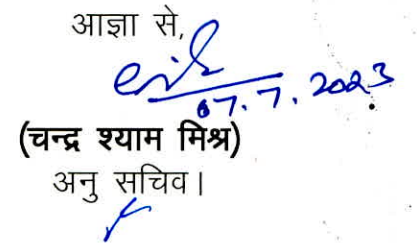 आज्ञा से,
07.7.2023
(चन्द्र श्याम मिश्र)
अनु सचिव।